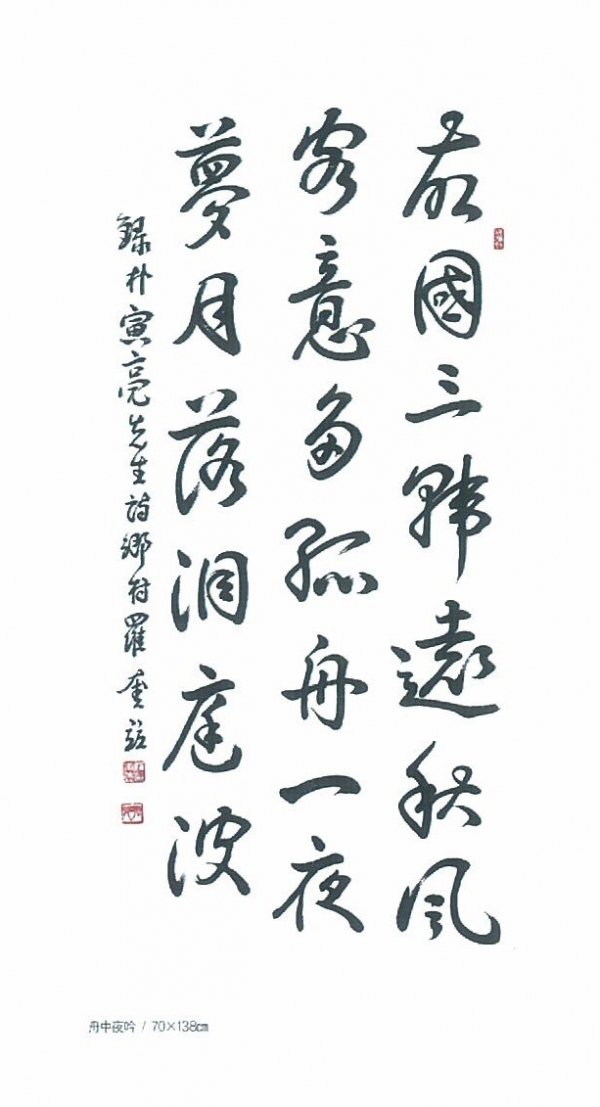 故國三韓遠秋風
客意多孤舟一夜
夢月落洞庭波
錄朴寅亮先生詩鄕村羅
舟中夜吟 / 70×138㎝